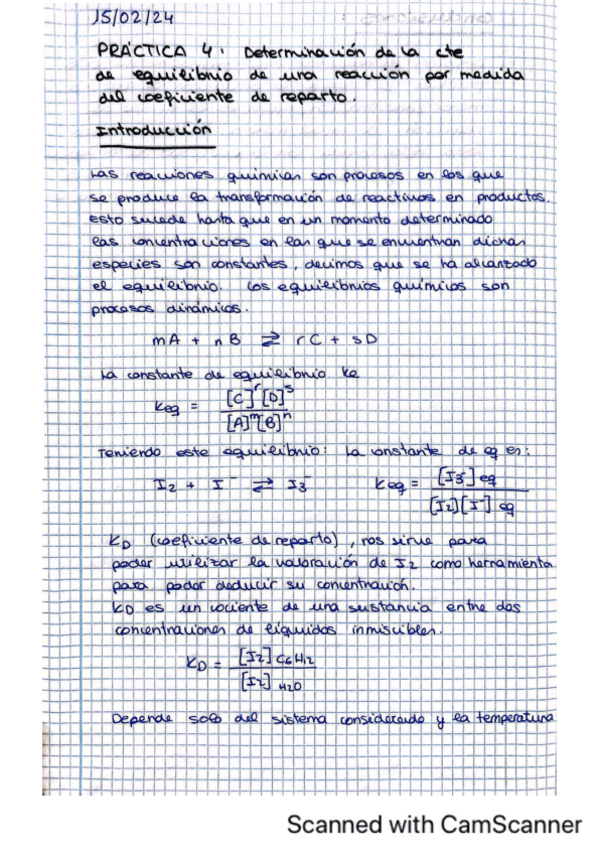 15/02/24
PRÁCTICA 4: Determinación de la cte
de equilibrio de una reacción por medida
del coeficiente de reparto.
Introducción
Las reacciones químicas son procesos en los que
se produce la transformación de reactivos en productos.
Esto sucede hasta que en un momento determinado
las concentraciones en las que se encuentran dichas
especies son constantes, decimos que se ha alcanzado
el equilibrio. Los equilibrios químicos son
procesos dinámicos.
mA + nB ⇄ rC + sD
La constante de equilibrio Ke
Keq = [C]^r [D]^s / [A]^m [B]^n
Teniendo este equilibrio: La constante de eq es:
I2 + I^- ⇄ I3^- Keq = [I3^-] eq / [I2][I^-] eq
KD (coeficiente de reparto), nos sirve para
poder utilizar la valoración de I2 como herramienta
para poder deducir su concentración.
KD es un cociente de una sustancia entre dos
concentraciones de líquidos inmiscibles.
KD = [I2] C6H12 / [I2] H2O
Depende solo del sistema considerado y la temperatura
Scanned with CamScanner